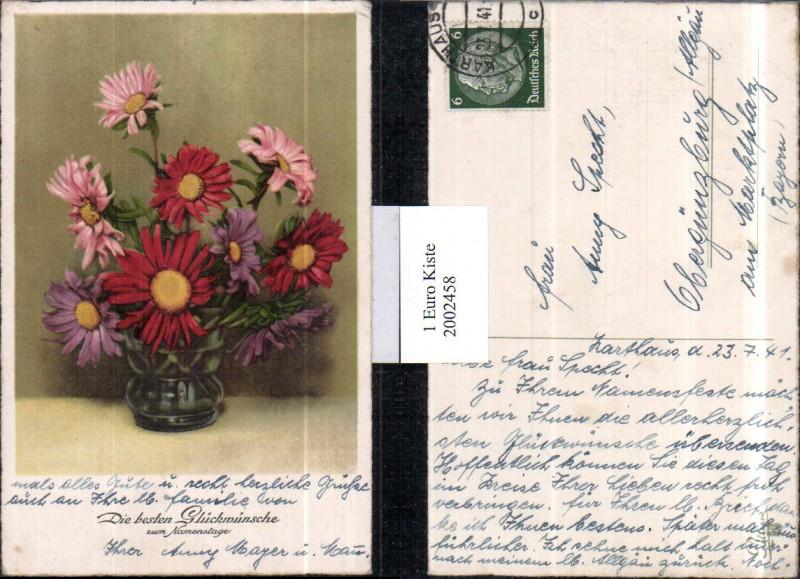 mals alles Gute u. recht herzliche Grüße
auch an Ihre lb. Familie von
Die besten Glückwünsche
zum Namenstage
Ihrer Anny Mayer u.
1 Euro Kiste
2002458
KARTHAUS
41
c
6 Deutsches Reich 6
Frau
Anny Specht,
Obergünzburg/Allgäu
am Marktplatz
(Bayern)
Karthaus, d. 23.7.41.
Liebe Frau Specht!
Zu Ihrem Namensfeste möch-
ten wir Ihnen die allerherzlich-
sten Glückwünsche übersenden.
Hoffentlich können Sie diesen Tag
im Kreise Ihrer Lieben recht froh
verbringen. Für Ihren lb. Brief dan-
ke ich Ihnen bestens. Später mal aus-
führlicher. Ich sehne mich halt immer
nach meinem lb. Allgäu zurück. Noch-